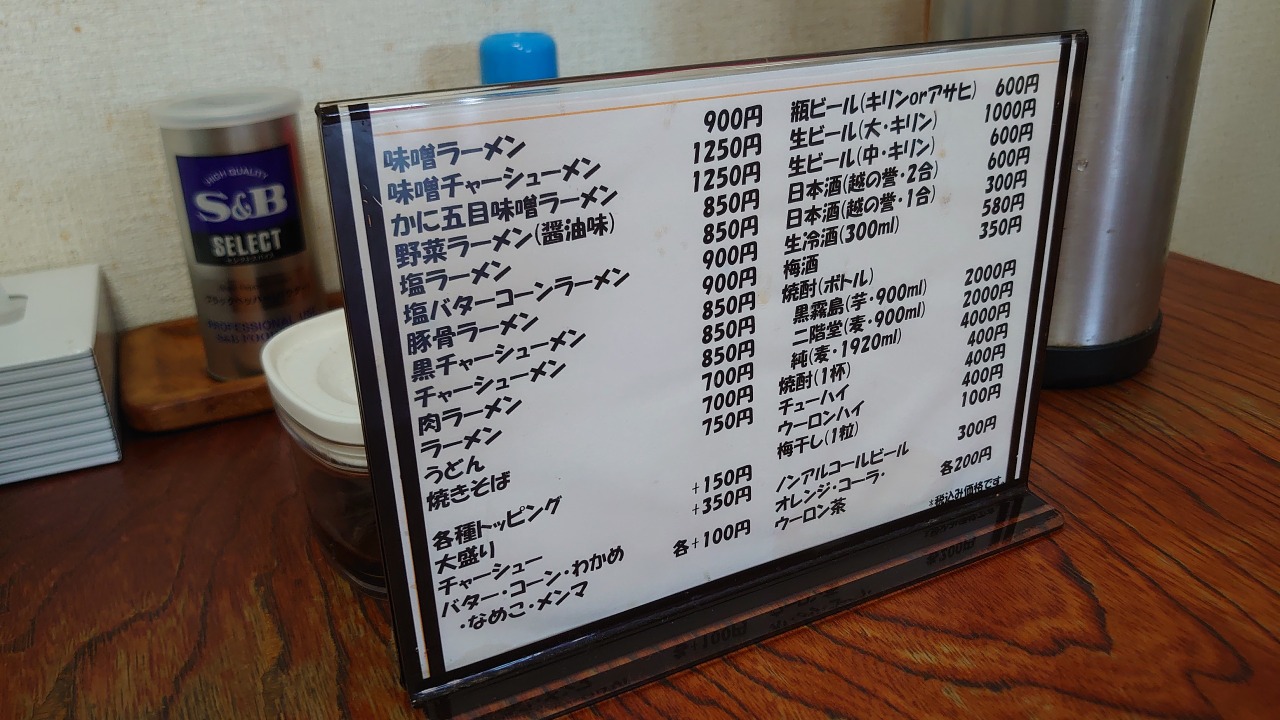 味噌ラーメン 900円
味噌チャーシューメン 1250円
かに五目味噌ラーメン 1250円
野菜ラーメン(醤油味) 850円
塩ラーメン 850円
塩バターコーンラーメン 900円
豚骨ラーメン 900円
黒チャーシューメン 850円
チャーシューメン 850円
肉ラーメン 850円
ラーメン 700円
うどん 700円
焼きそば 750円
各種トッピング
大盛り +150円
チャーシュー +350円
バター・コーン・わかめ
・なめこ・メンマ 各+100円
瓶ビール(キリンorアサヒ) 600円
生ビール(大・キリン) 1000円
生ビール(中・キリン) 600円
日本酒(越の誉・2合) 600円
日本酒(越の誉・1合) 300円
生冷酒(300ml) 580円
梅酒 350円
焼酎(ボトル)
黒霧島(芋・900ml) 2000円
二階堂(麦・900ml) 2000円
純(麦・1920ml) 4000円
焼酎(1杯) 400円
チューハイ 400円
ウーロンハイ 400円
梅干し(1粒) 100円
ノンアルコールビール 300円
オレンジ・コーラ・
ウーロン茶 各200円
※税込み価格です
HIGH QUALITY
S&B
SELECT
PROFESSIONAL USE
S&B FOODS